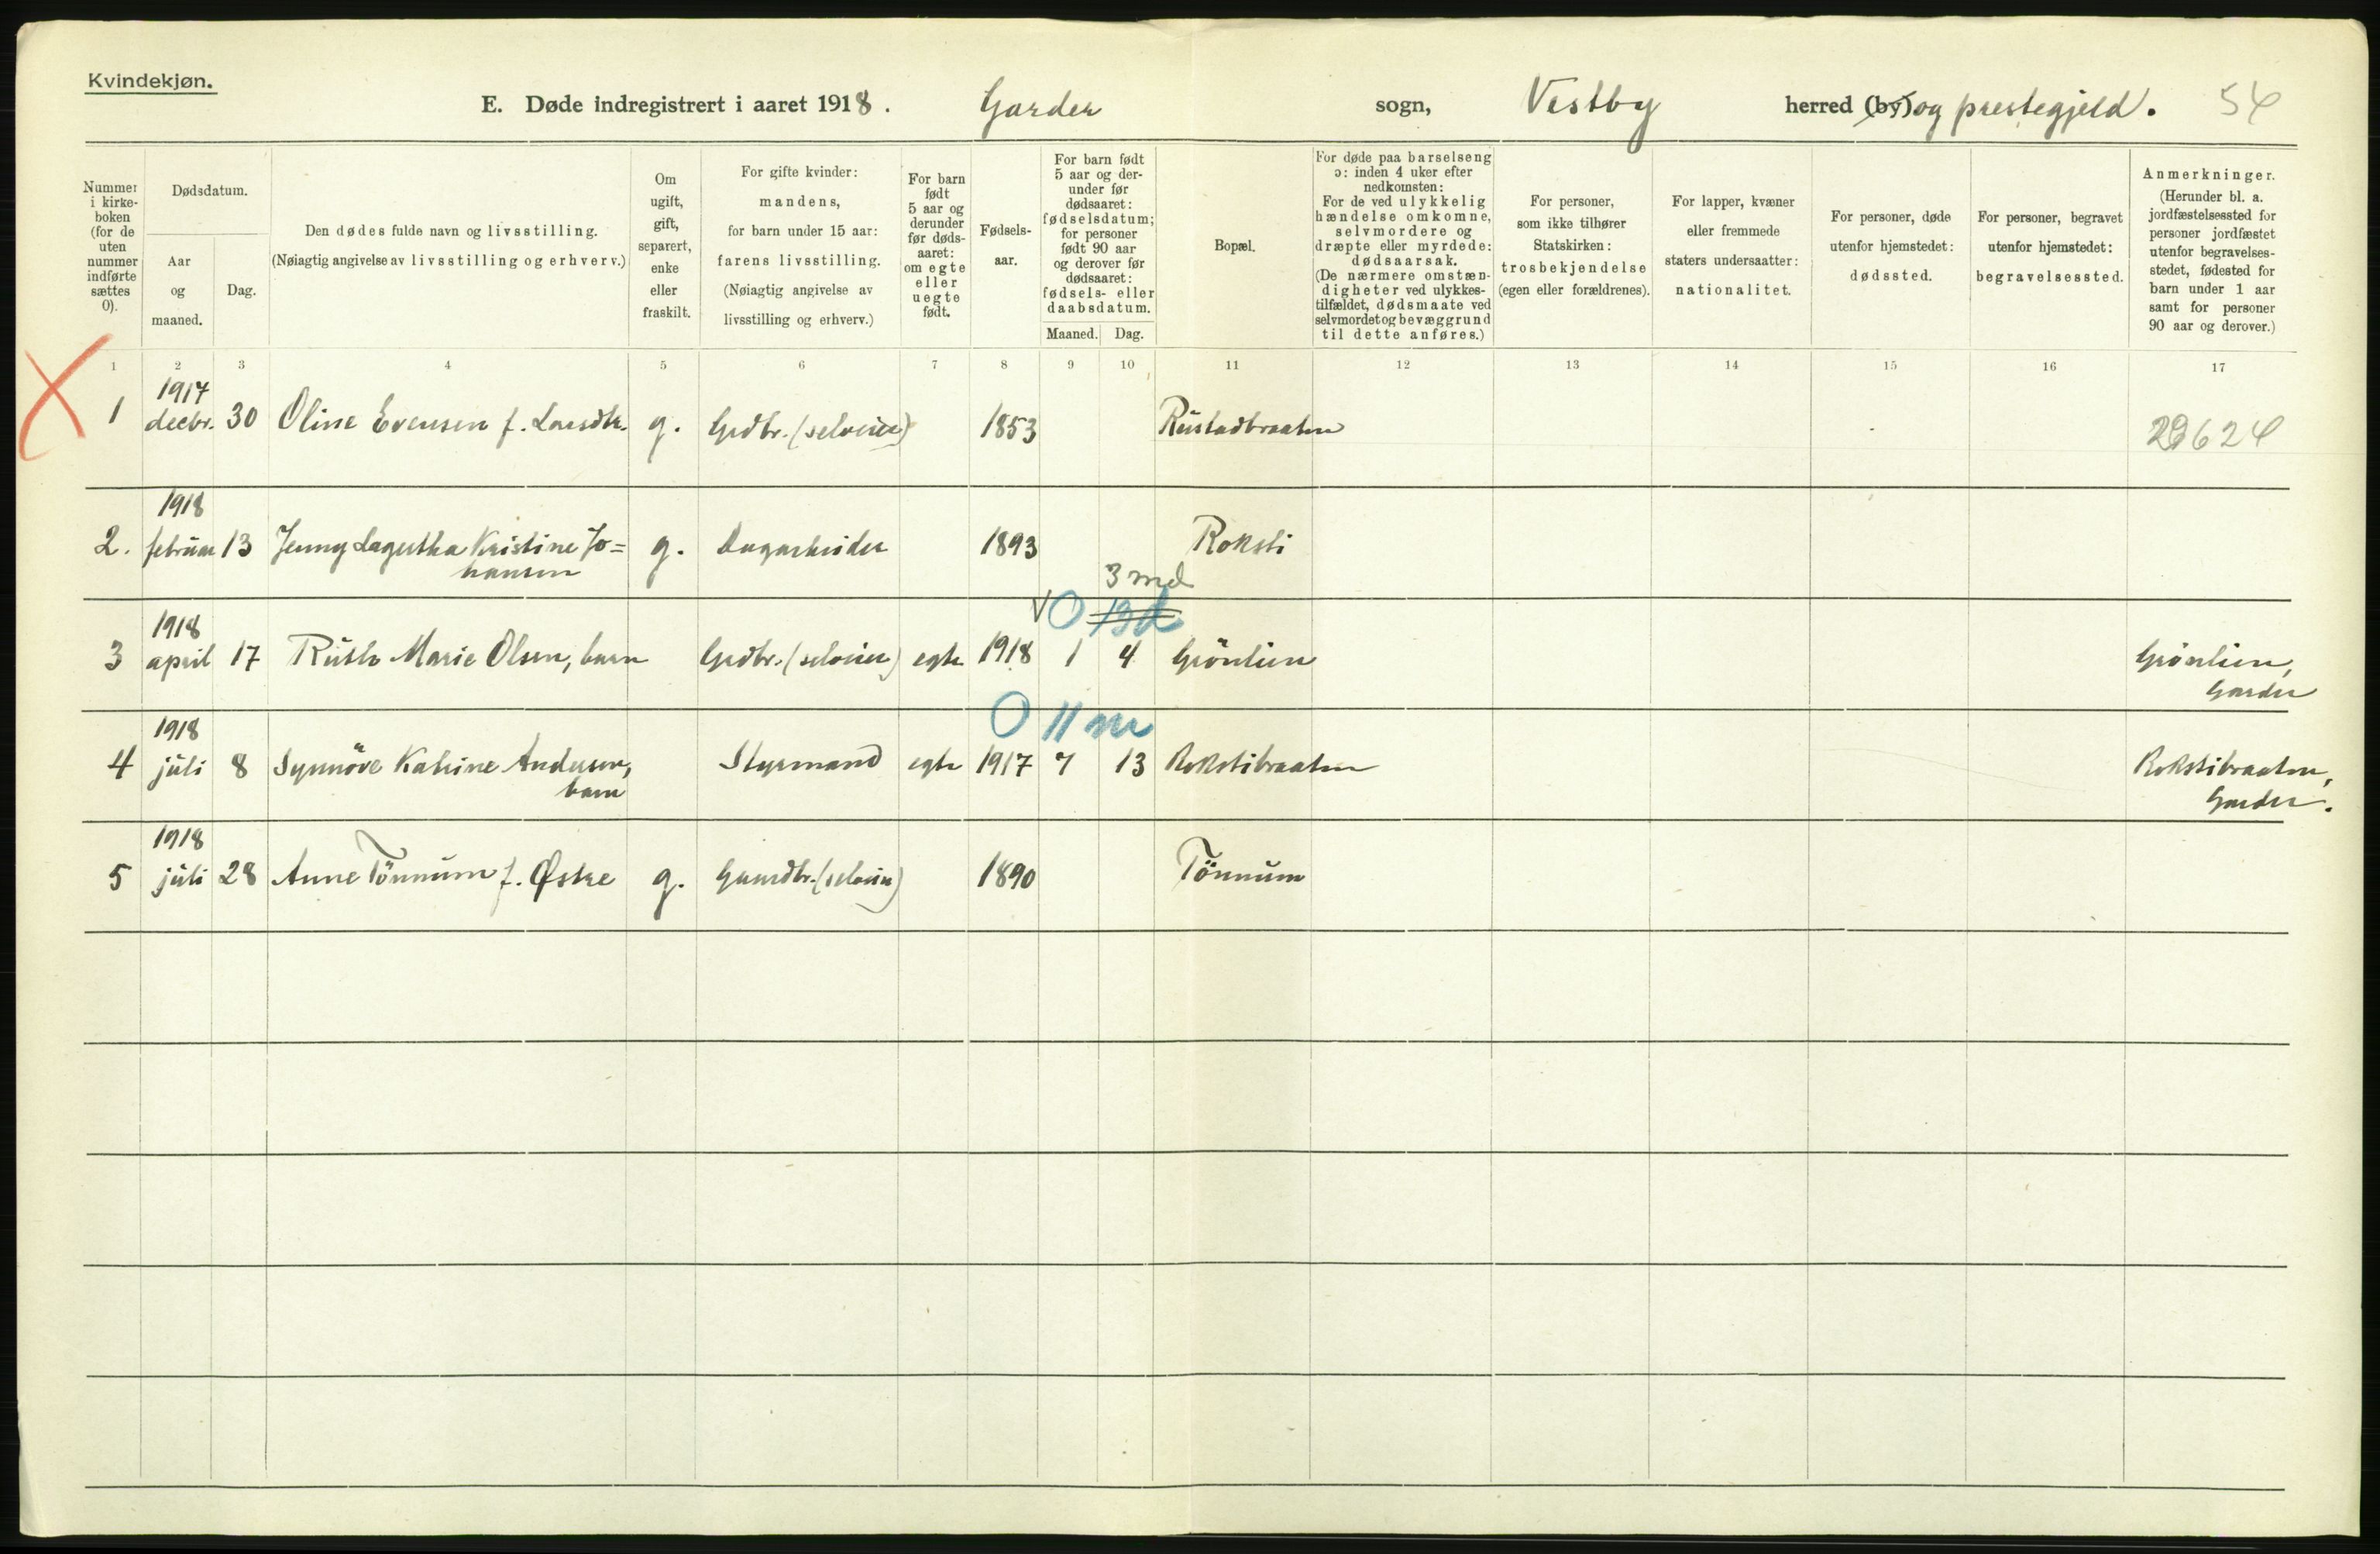 Kvindekjøn.
E. Døde indregistrert i aaret 1918. Garder sogn, Vestby herred (by) og prestegjeld. 54
Nummer i kirkeboken (for de uten nummer indførte sættes 0).
Dødsdatum.
Aar og maaned.
Dag.
Den dødes fulde navn og livsstilling.
(Nøiagtig angivelse av livsstilling og erhverv.)
Om ugift, gift, separert, enke eller fraskilt.
For gifte kvinder: mandens, for barn under 15 aar: farens livsstilling. (Nøiagtig angivelse av livsstilling og erhverv.)
For barn født 5 aar og derunder før dødsaaret: om egte eller uegte født.
Fødselsaar.
For barn født 5 aar og derunder før dødsaaret: fødselsdatum; for personer født 90 aar og derover før dødsaaret: fødsels- eller daabsdatum.
Maaned. Dag.
Bopæl.
For døde paa barselseng ɔ: inden 4 uker efter nedkomsten: For de ved ulykkelig hændelse omkomne, selvmordere og dræpte eller myrdede: dødsaarsak. (De nærmere omstændigheter ved ulykkestilfældet, dødsmaate ved selvmordet og bevæggrund til dette anføres.)
For personer, som ikke tilhører Statskirken: trosbekjendelse (egen eller forældrenes).
For lapper, kvæner eller fremmede staters undersaatter: nationalitet.
For personer, døde utenfor hjemstedet: dødssted.
For personer, begravet utenfor hjemstedet: begravelsessted.
Anmerkninger. (Herunder bl. a. jordfæstelsessted for personer jordfæstet utenfor begravelsesstedet, fødested for barn under 1 aar samt for personer 90 aar og derover.)
1 2 3 4 5 6 7 8 9 10 11 12 13 14 15 16 17
1917
1 decbr. 30 Oline Evensen f. Larsdtr. g. Grdbr. (selveier) 1853 Rustadbraaten 29624
1918
2. februar 13 Jenny Lagertha Kristine Jo=
hansen g. Dagarbeider 1893 Roksti
3 md
V O 13 d
1918
3 april 17 Ruth Marie Olsen, barn Grdbr. (selveier) egte 1918 1 4 Grönlien Grönlien,
Garder
O 11 m
1918
4 juli 8 Synnöve Katrine Andersen,
barn Styrmand egte 1917 7 13 Rokstibraaten Rokstibraaten,
Garder.
1918
5 juli 28 Anne Tönnum f. Østre g. Gaardbr. (selveier) 1890 Tönnum